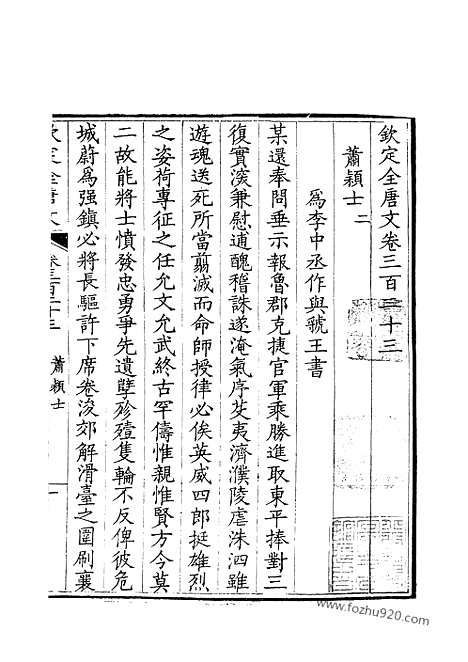 欽定全唐文卷三百二十三
蕭穎士二
爲李中丞作與虢王書
某還奉問垂示報魯郡克捷官軍乘勝進取東平捧對三
復實深兼慰逋醜稽誅遂淹氣序芟夷濟濮陵虐洙泗雖
遊魂送死所當翦滅而命師授律必俟英威四郎挺雄烈
之姿荷專征之任允文允武終古罕儔惟親惟賢方今莫
二故能將士憤發忠勇爭先遺孽殄殪隻輪不反俾彼危
城蔚爲强鎮必將長驅許下席卷浚郊解滑臺之圍刷襄
欽定全唐文 卷三百二十三 蕭穎士 一
www.fozhu920.com